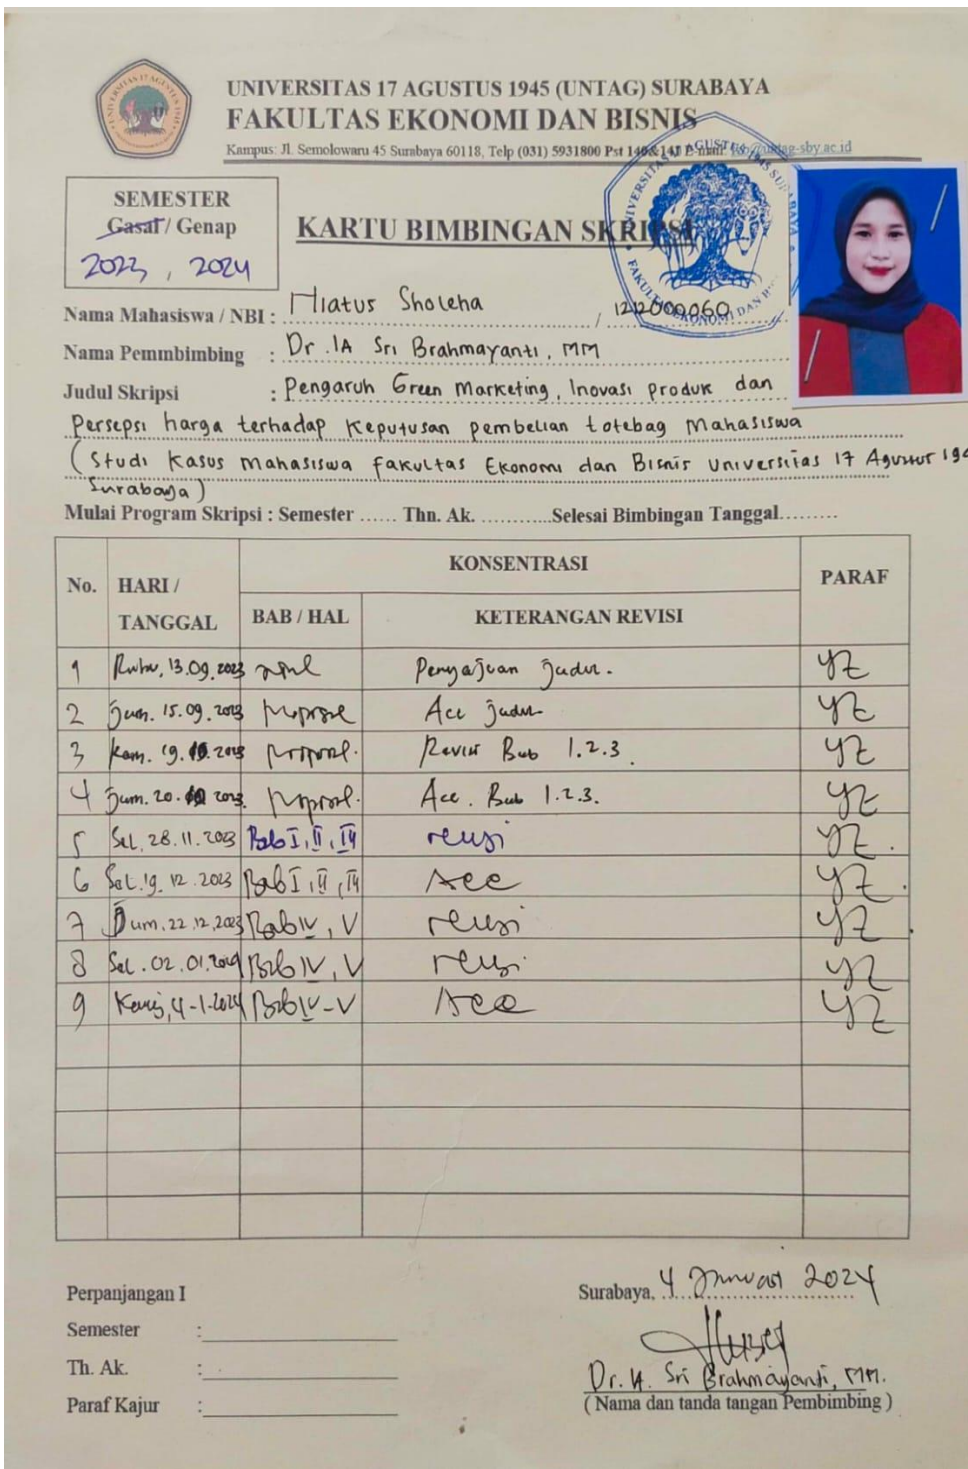 UNIVERSITAS 17 AGUSTUS 1945 (UNTAG) SURABAYA
FAKULTAS EKONOMI DAN BISNIS
Kampus: Jl. Semolowaru 45 Surabaya 60118, Telp (031) 5931800 Pst 140&141 E-mail: @untag-sby.ac.id
SEMESTER
Gasal / Genap
2023, 2024
KARTU BIMBINGAN SKRIPSI
Nama Mahasiswa / NBI : Hiatus Sholeha / 1212000060
Nama Pemmbimbing : Dr. IA Sri Brahmayanti, MM
Judul Skripsi : Pengaruh Green Marketing, Inovasi produk dan
Persepsi harga terhadap Keputusan pembelian totebag Mahasiswa
(Studi Kasus Mahasiswa Fakultas Ekonomi dan Bisnis Universitas 17 Agustus 194
Surabaya)
Mulai Program Skripsi : Semester ...... Thn. Ak. ............Selesai Bimbingan Tanggal.........
No. HARI / TANGGAL KONSENTRASI PARAF
BAB / HAL KETERANGAN REVISI
1 Rabu, 13.09.2023 Pengajuan judul.
2 Jum. 15.09.2023 proposal Acc judul
3 Kam. 19.10.2023 proposal. Revisi Bab 1.2.3
4 Jum. 20.10 2023. proposal. Acc. Bab 1.2.3.
5 Sel, 28.11.2023 Bab I, II, III revisi
6 Sel. 19.12.2023 Bab I, II, III Acc
7 Jum. 22.12.2023 Bab IV, V revisi
8 Sel. 02.01.2024 Bab IV, V revisi
9 Kamis, 4-1-2024 Bab IV-V Acc
Perpanjangan I
Semester :
Th. Ak. :
Paraf Kajur :
Surabaya, 4 Januari 2024
Dr. IA. Sri Brahmayanti, MM.
( Nama dan tanda tangan Pembimbing )